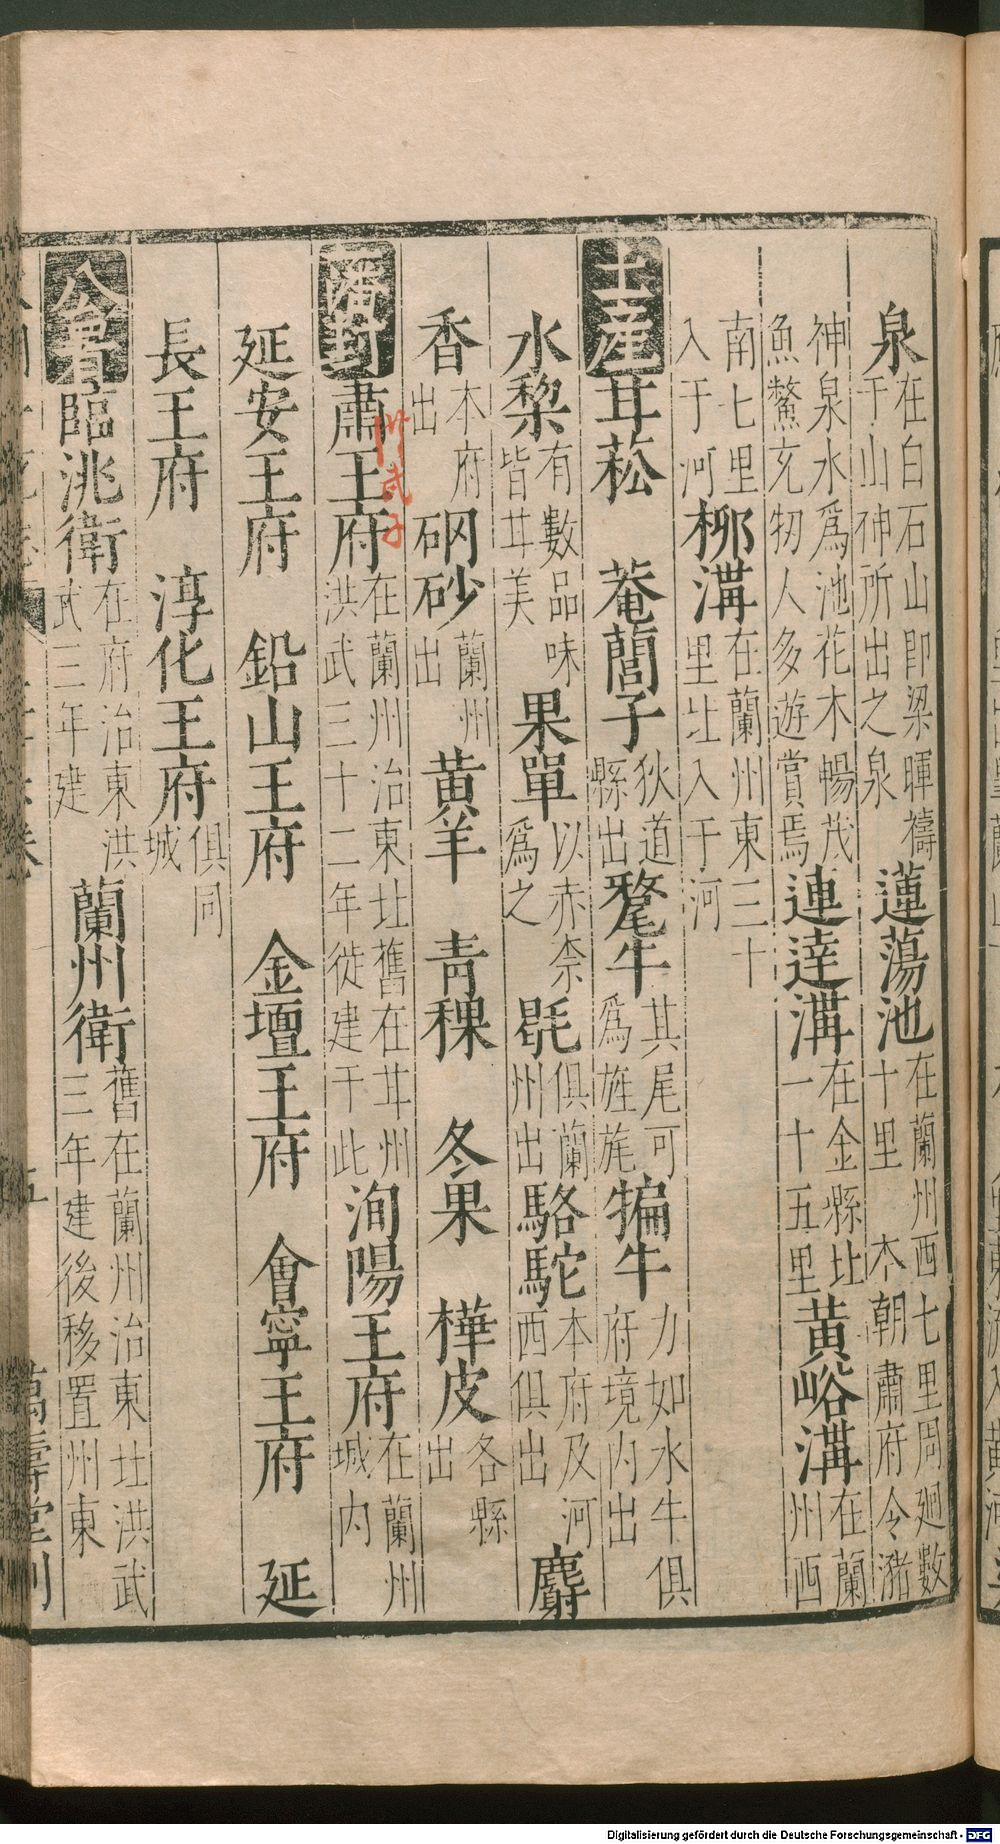 泉在白石山即梁暉禱于山神所出之泉　蓮蕩池在蘭州西七里周廻數十里　本朝肅府令瀦
神泉水爲池花木暢茂魚鱉充牣人多遊賞焉　連達溝在金縣北一十五里　黄峪溝在蘭州西
南七里入于河　栁溝在蘭州東三十里北入于河
土産　苷菘　菴䕡子狄道縣出　氂牛其尾可爲旌旄　犏牛力如水牛俱府境内出
水棃有數品味皆苷美　果單以赤柰爲之　毼俱蘭州出　駱駝本府及河西俱出　麝
香本府出　硇砂蘭州出　黄羊　青稞　冬果　樺皮各縣出
藩封　肅王府在蘭州治東北舊在苷州洪武三十二年徙建于此　洵陽王府在蘭州城内
延安王府　鉛山王府　金壇王府　會寧王府　延
長王府　淳化王府俱同城
公署　臨洮衛在府治東洪武三年建　蘭州衛舊在蘭州治東北洪武三年建後移置州東
萬壽堂刊
Digitalisierung gefördert durch die Deutsche Forschungsgemeinschaft - DFG